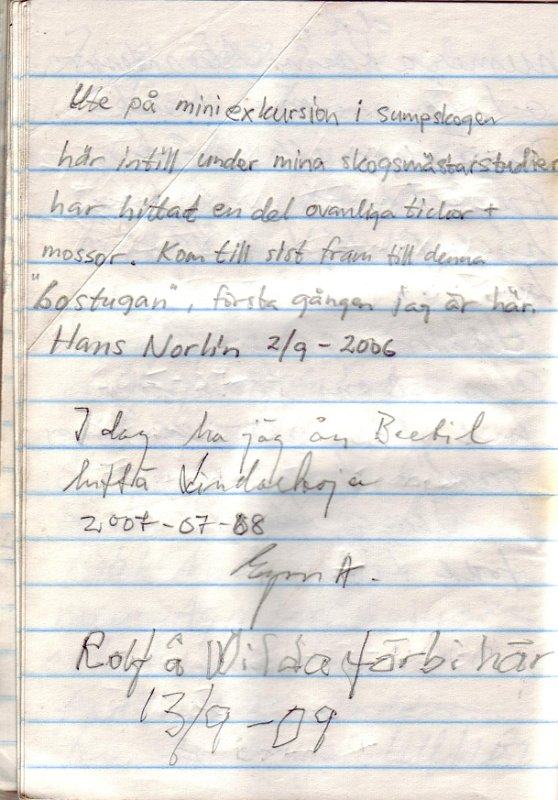 Ute på miniexkursion i sumpskogen
här intill under mina skogsmästarstudier
har hittat en del ovanliga tickor +
mossor. Kom till sist fram till denna
"bostugan", första gången jag är här.
Hans Norlin 2/9 - 2006
I dag ha jag
hitta
2007-07-
A.
Rolf å förbi här
13/9 - 09